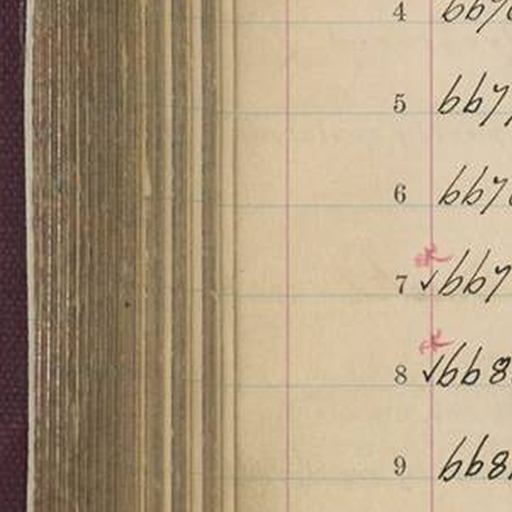 4 667
5 667
6 667
7 ✓667
8 ✓668
9 668